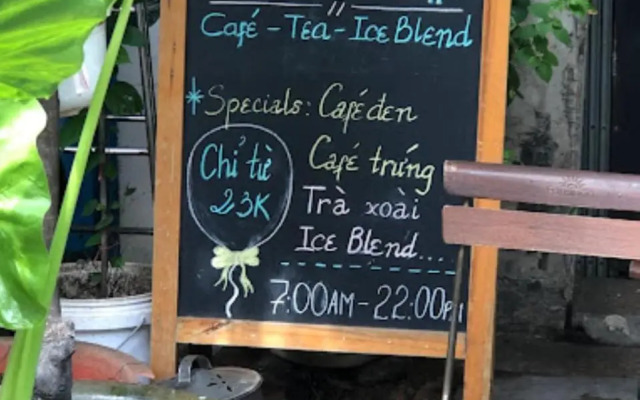 Café - Tea - Ice Blend
*Specials: Café đen
Café trứng
Trà xoài
Ice Blend...
Chỉ từ
23K
7:00AM - 22:00PM